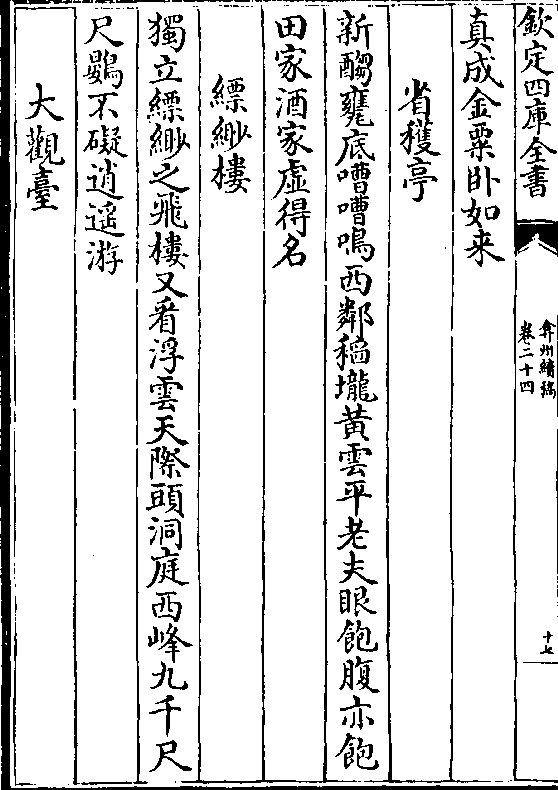 欽定四庫全書
弇州續稿
卷二十四
十七
真成金粟卧如来
省穫亭
新醅甕底嘈嘈鳴西鄰稻壠黄雲平老夫眼飽腹亦飽
田家酒家虛得名
縹緲樓
獨立縹緲之飛樓又看浮雲天際頭洞庭西峰九千尺
尺鷃不礙逍遥游
大觀臺